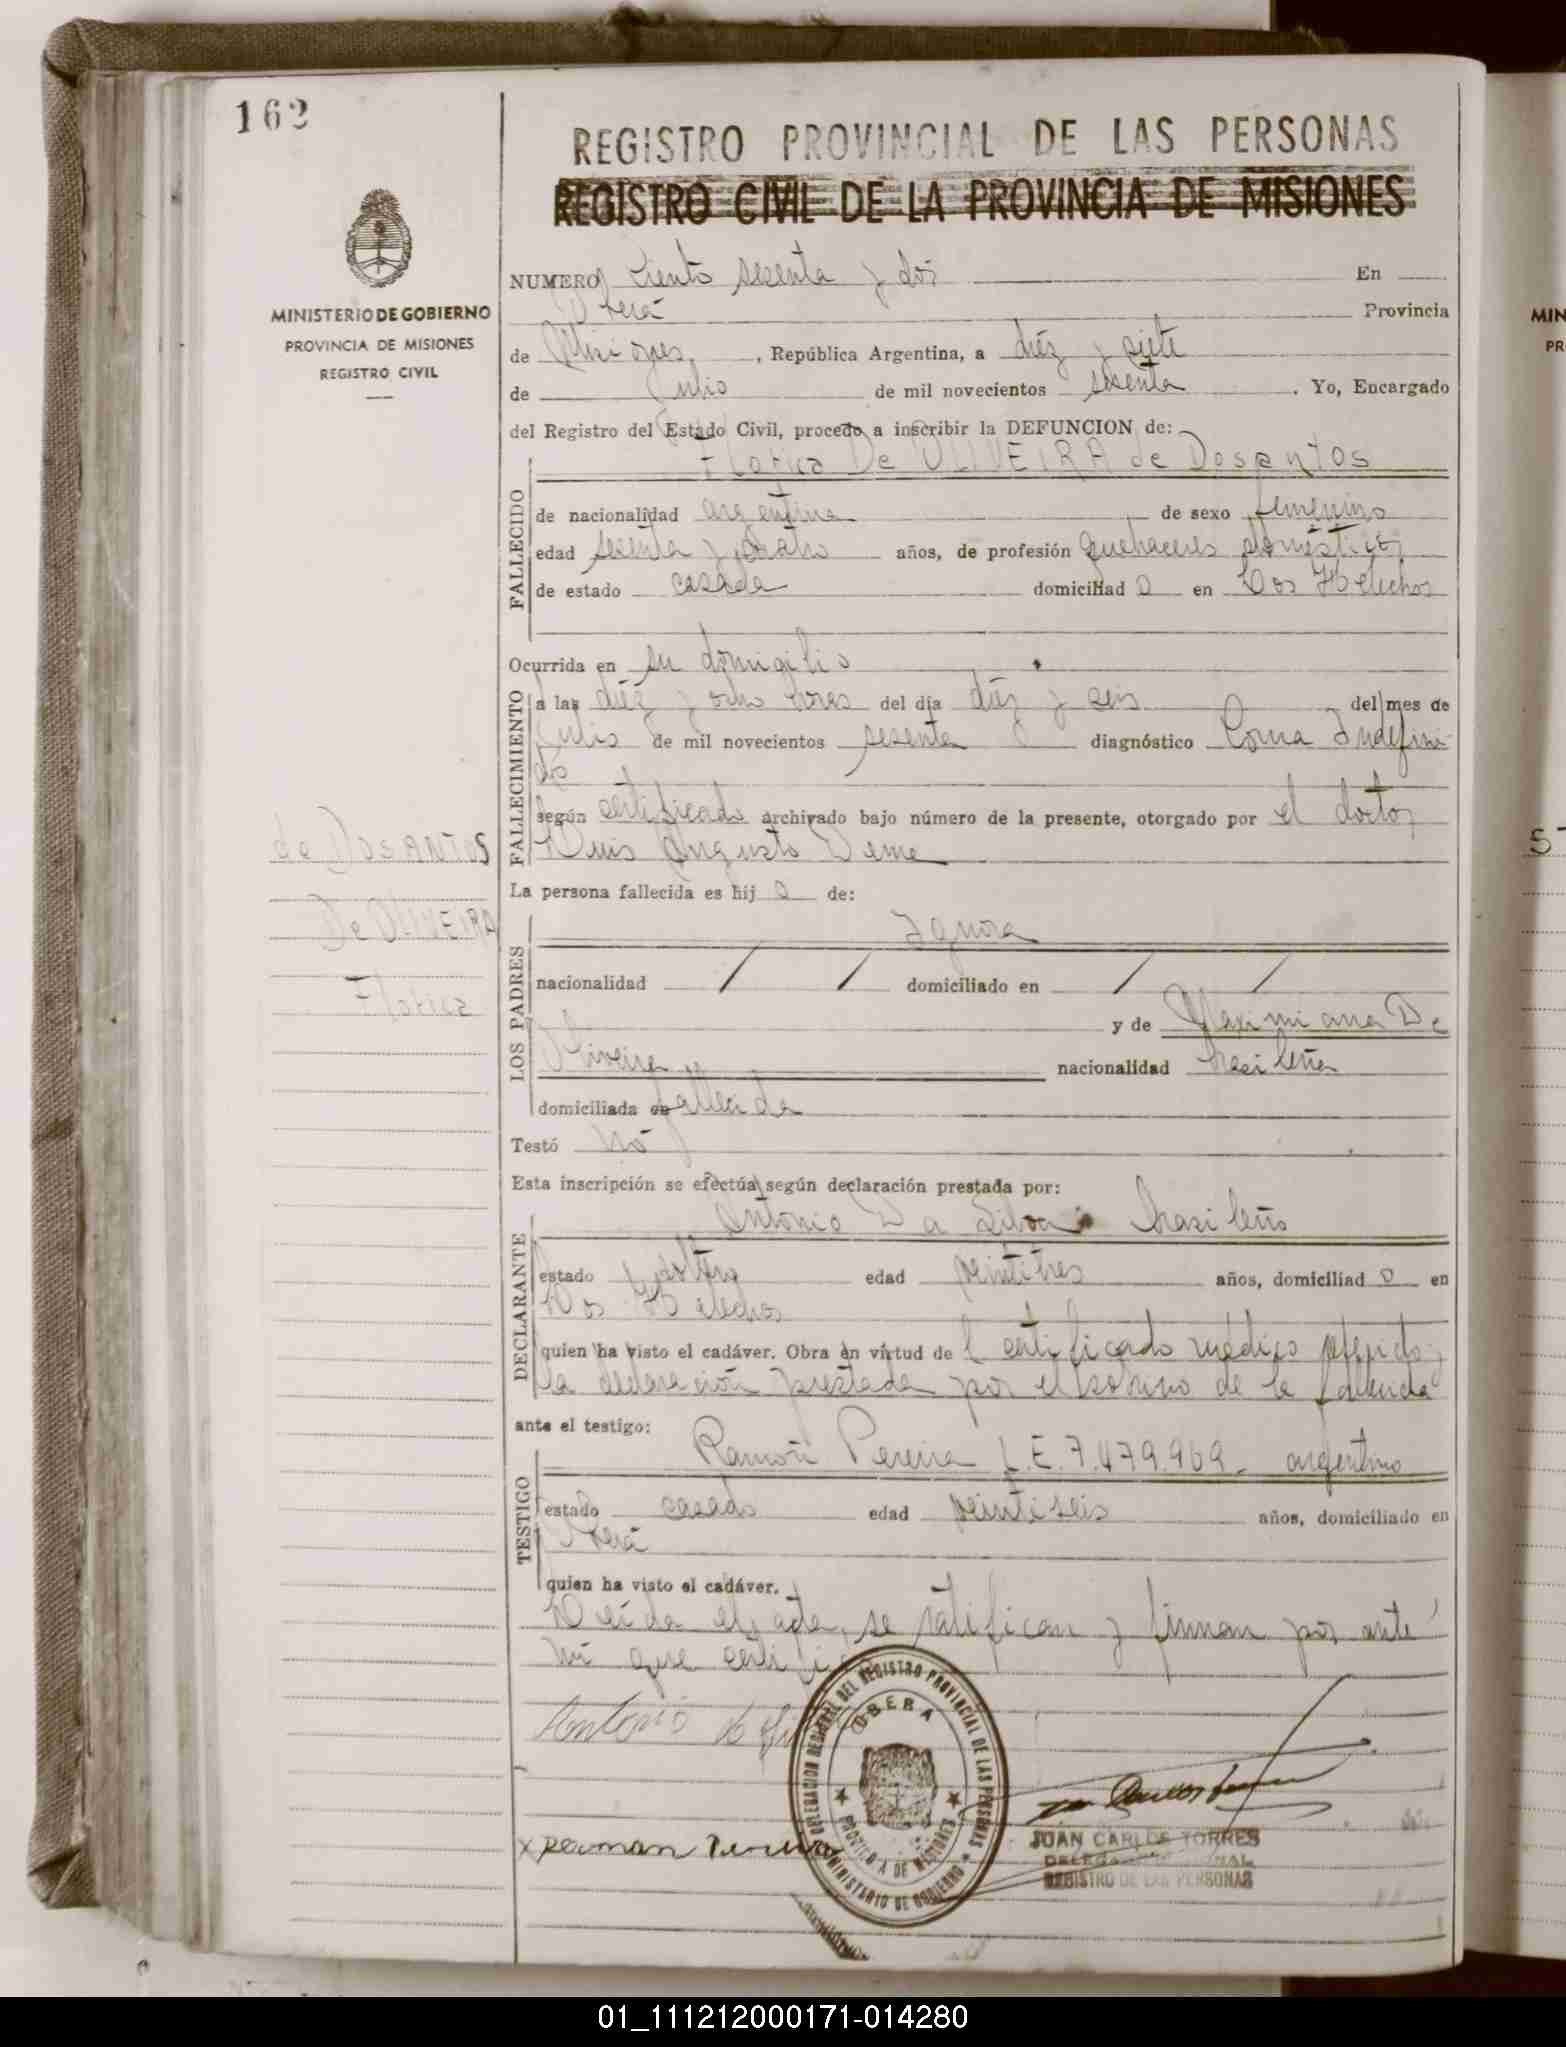 162
REGISTRO PROVINCIAL DE LAS PERSONAS
REGISTRO CIVIL DE LA PROVINCIA DE MISIONES
MINISTERIO DE GOBIERNO
PROVINCIA DE MISIONES
REGISTRO CIVIL
NUMERO Ciento sesenta y dos En
Oberá Provincia
de Misiones, , República Argentina, a diéz y siete
de Julio de mil novecientos sesenta . Yo, Encargado
del Registro del Estado Civil, procedo a inscribir la DEFUNCION de:
De OLIVEIRA de Dosantos
FALLECIDO
de nacionalidad argentina de sexo femenino
edad sesenta y cuatro años, de profesión quehaceres domésticos
de estado casada domiciliad a en Los Helechos
Ocurrida en su domicilio
FALLECIMIENTO
a las diéz y ocho horas del día diéz y seis del mes de
Julio de mil novecientos sesenta diagnóstico Coma Indefini
do
según certificado archivado bajo número de la presente, otorgado por el doctor
Luis Augusto
de DOSANTOS
De OLIVEIRA
La persona fallecida es hij a de:
LOS PADRES
Ignora
nacionalidad / / domiciliado en / /
y de Maximiana De
Oliveira nacionalidad brasileña
domiciliada en fallecida
Testó nó
Esta inscripción se efectúa según declaración prestada por:
DECLARANTE
Antonio Da Silva brasileño
estado soltero edad veintitres años, domiciliad o en
Los Helechos
quien ha visto el cadáver. Obra en virtud de l certificado médico referido y
la declaración prestada por el sobrino de la fallecida
ante el testigo:
TESTIGO
Ramón Pereira L.E. 7.479.969 - argentino
estado casado edad veintiseis años, domiciliado en
Oberá
quien ha visto el cadáver.
Leída el acta, se ratifican y firman por ante
mi que certifico
Antonio
DELEGACION REGIONAL DEL REGISTRO PROVINCIAL DE LAS PERSONAS
OBERA
PROVINCIA DE MISIONES
MINISTERIO DE GOBIERNO
x Raman Pereira
JUAN CARLOS TORRES
DELEGADO REGIONAL
REGISTRO DE LAS PERSONAS
MIN
PR
S
01_111212000171-014280